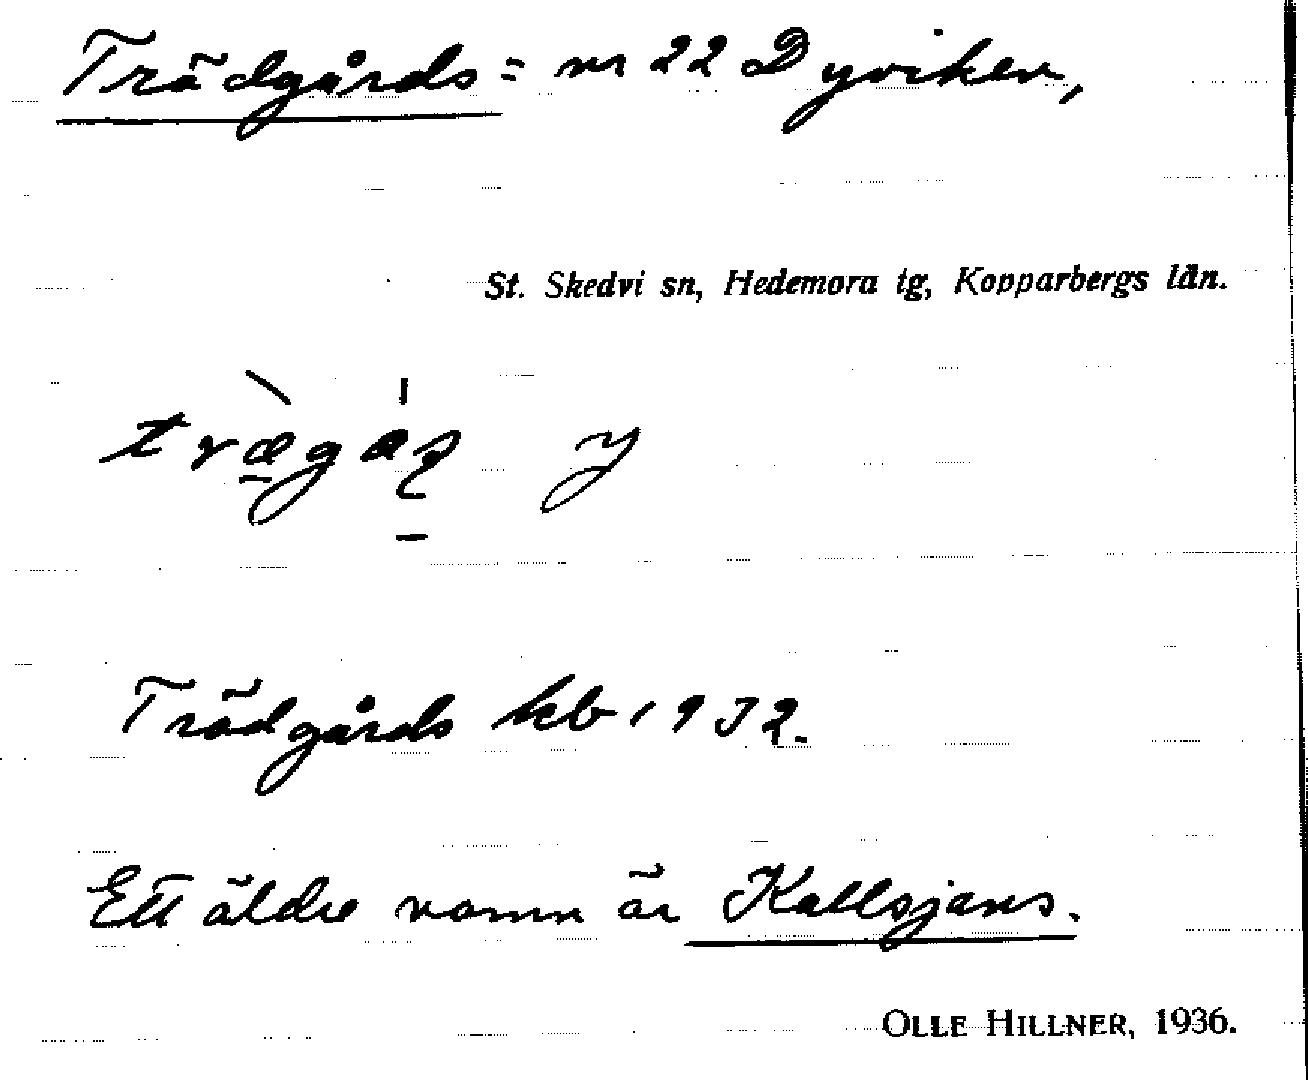 Trädgårds = nr 22 Dyviken,
St. Skedvi sn, Hedemora tg, Kopparbergs län.
Trädgårds kb 1932.
Ett äldre namn är Kallsjans.
OLLE HILLNER, 1936.